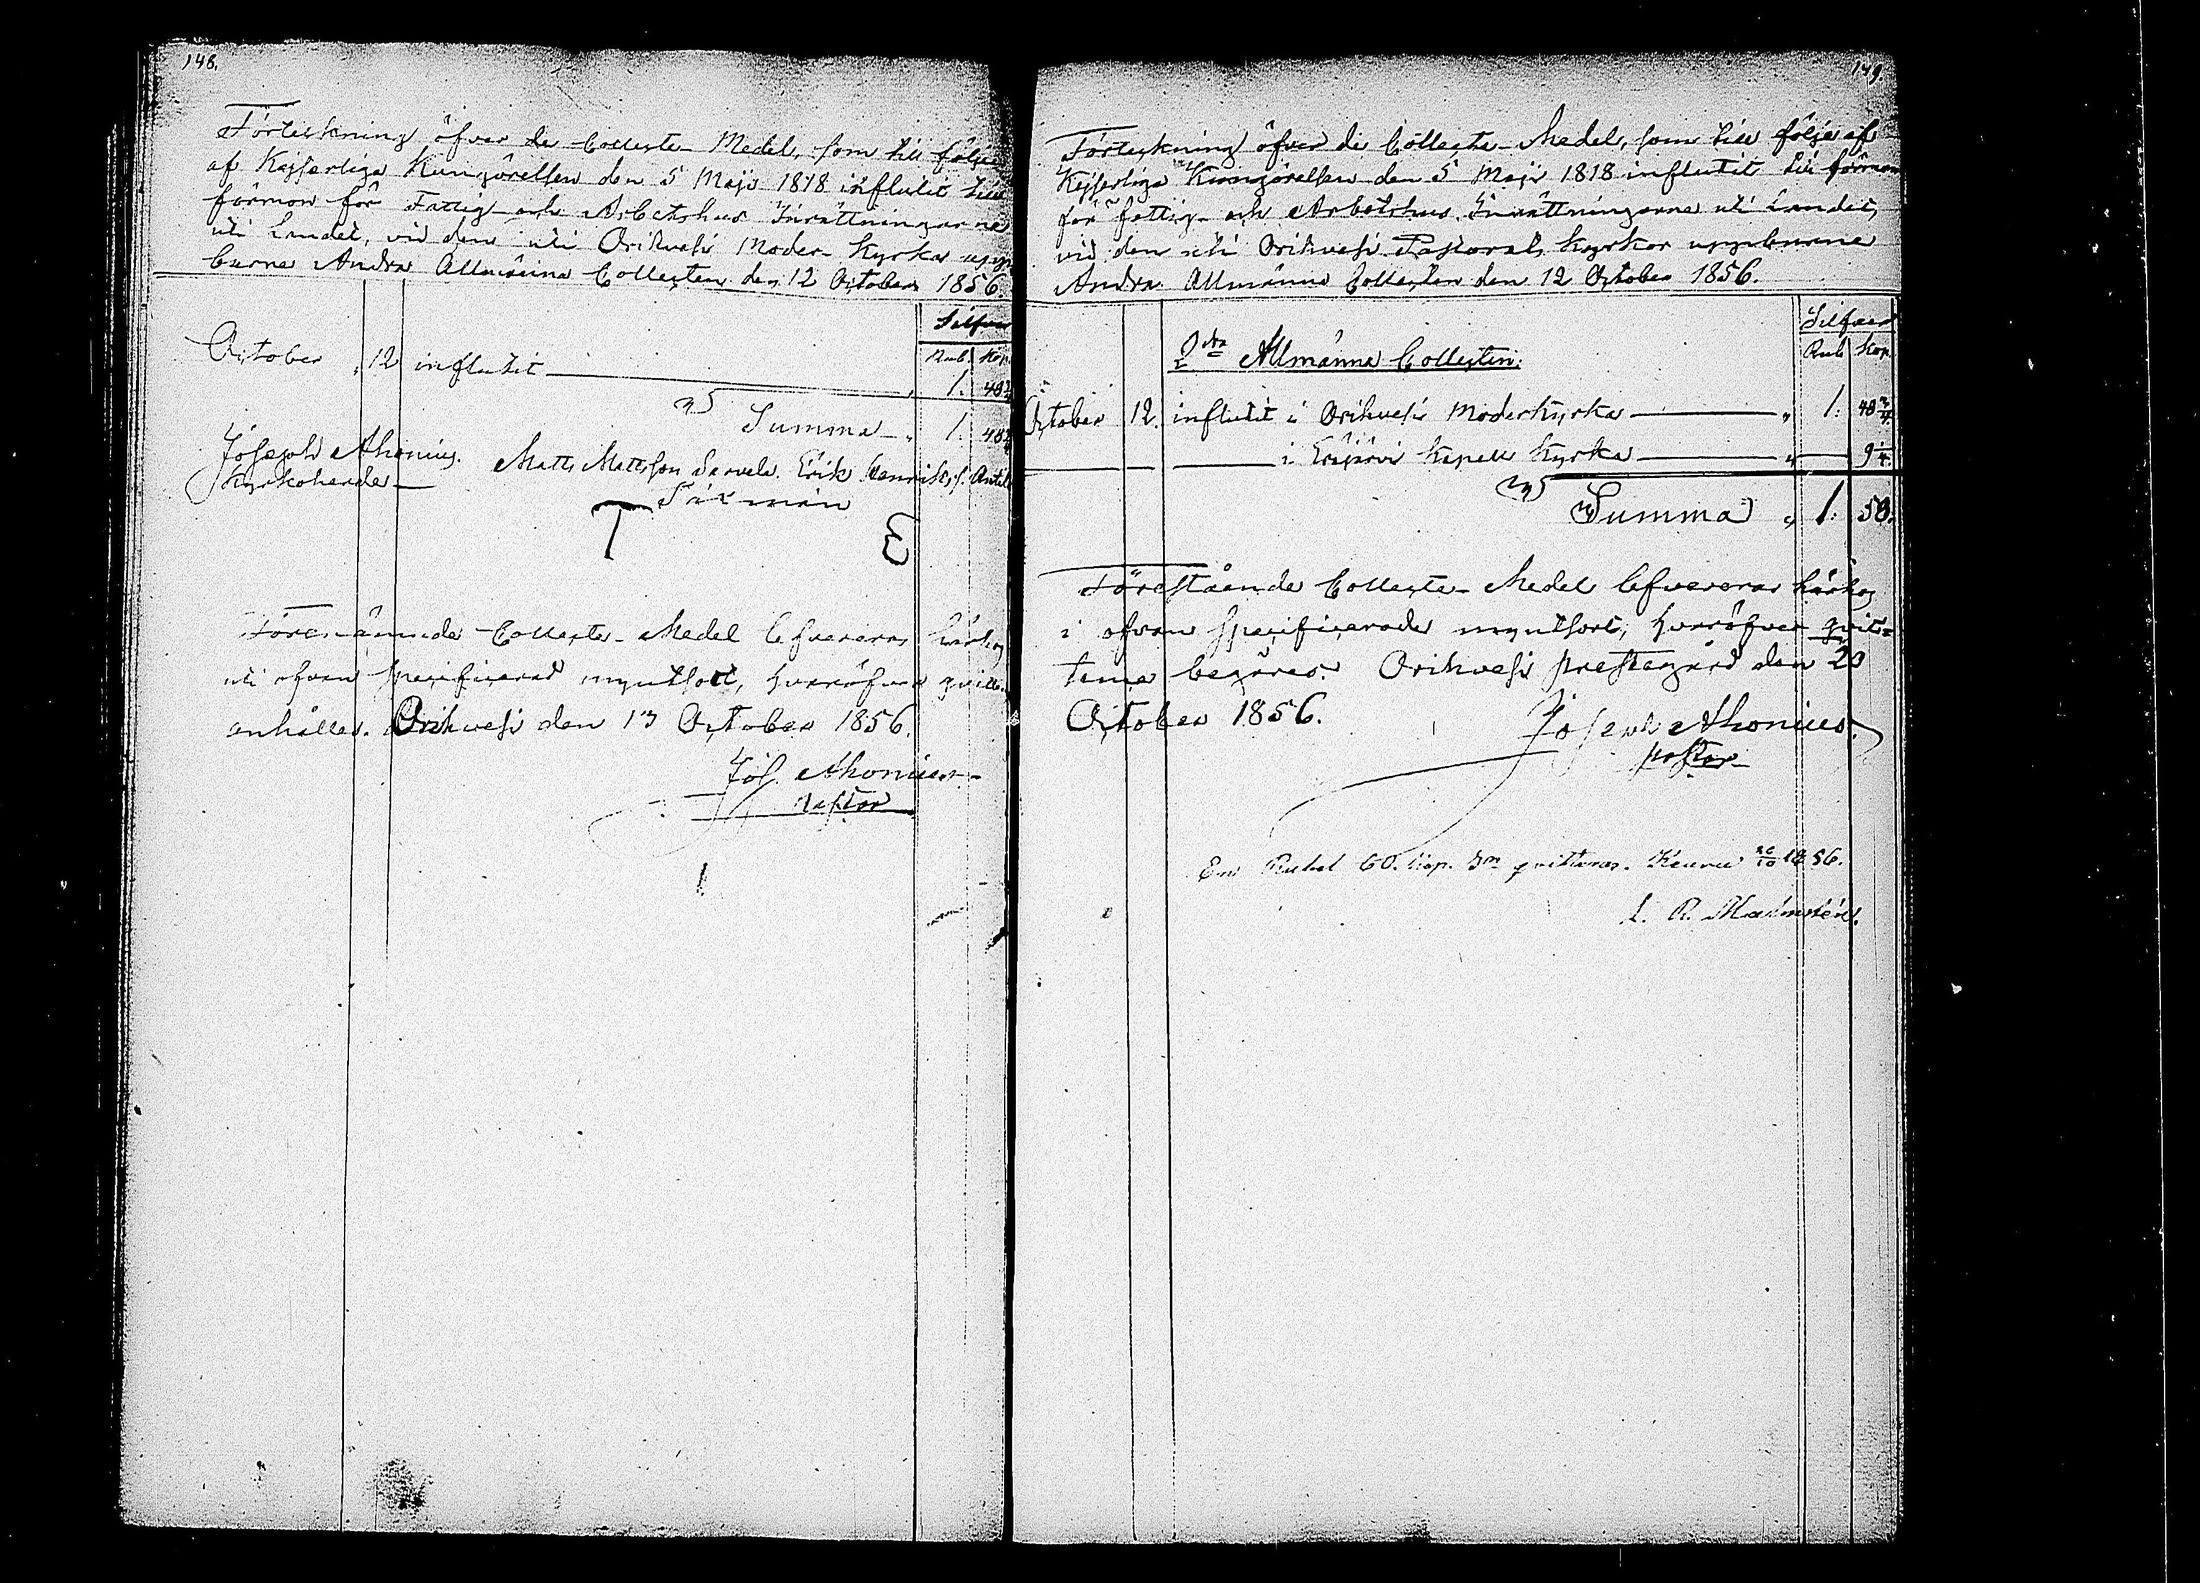 148.
Förteckning öfver de Collecte-Medel, som till följe
af Kejserliga Kungörelsen den 5 Maji 1818 influtit till
förmon för Fattig- och Arbetshus Inrättningarne
uti Landet, vid den uti Orihvesi Moder-Kyrka upp
burne Andra Allmänna Collecten den 12 October 1856.
Silfver
Rub. Kop.
October 12 influtit 1. 48 3/4
Summa 1. 48 3/4
Joseph Ahonius. Matts Mattsson Sarvela. Erik Henriks. s. Anttila
Kyrkoherde Säxmän
T E
Förenämnde Collecte-Medel lefvereras härhos
uti ofvan specificerad myntsort, hvaröfver qvitt
anhålles. Orihvesi den 13 October 1856.
Jos. Ahonius
Pastor
149.
Förteckning öfver de Collecte-Medel, som till följe af
Kejserliga Kungörelsen den 5 Maji 1818 influtit till förmon
för fattig- och Arbetshus Inrättningarne uti Landet,
vid den uti Orihvesi Pastorats kyrkor uppburne
Andra Allmänna Collecten den 12 October 1856.
Silfver
2dra Allmänna Collecten. Rub. Kop.
October 12. influtit i Orihvesi Moderkyrka " 1. 48 3/4
i Eräjärvi Kapell Kyrka " 9 1/4.
Summa " 1. 58.
Förestående Collecte-Medel lefvereras härhos
i ofvan specificerade myntsort, hvaröfver qvit-
tence begäres. Orihvesi prestegård den 20
October 1856. Joseph Ahonius.
pastor
En Rubel 60. kop. Sr qvitteras. Keuru 26/10 1856.
L. R. Malmstén.